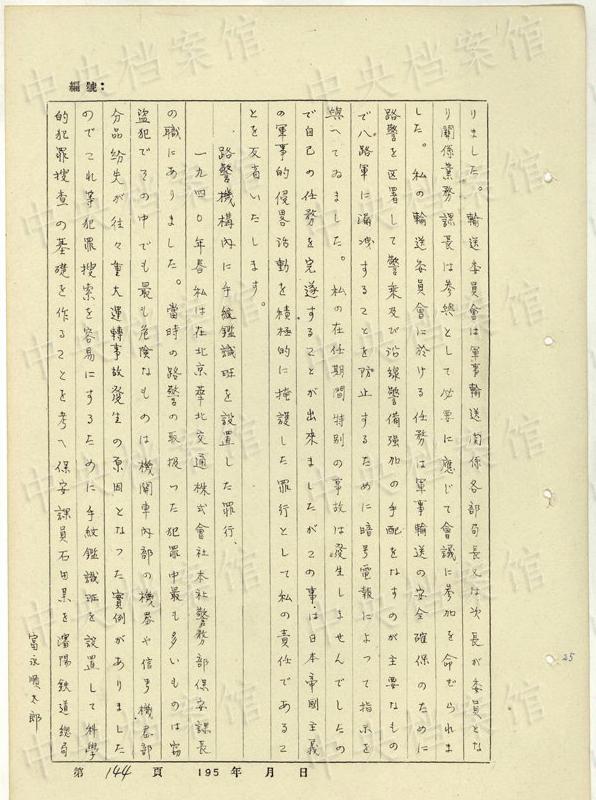 編號：
りました。輸送委員會は軍事輸送関係各部局長又は次長が委員とな
り関係業務課長は参終として必要に應じて會議に参加を命ぜられま
した。私の輸送委員會に於ける任務は軍事輸送の安全確保のために
路警を区署して警乘及び沿線警備強加の手配をなすのが主要なもの
で八路軍に漏洩することを防止するために暗号電報によって指示を
與へてゐました。私の在任期間特別の事故は發生しませんでしたの
で自己の任務を完遂することが出来ましたがこの事は日本帝國主義
の軍事的侵畧活動を積極的に掩護した罪行として私の責任であるこ
とを反省いたします。
路警機構内に手紋鑑識班を設置した罪行、
一九四〇年春私は在北京華北交通株式會社本社警務部保安課長
の職にありました。當時の路警の取扱った犯罪中最も多いものは窃
盗犯でその中でも最も危険なものは機関車内部の機器や信号機器部
分品紛失が往々重大運轉事故發生の原因となった實例がありました
のでこれ等犯罪搜索を容易にするために手紋鑑識班を設置して科學
的犯罪搜查の基礎を作ることを考へ保安課員石田某を瀋陽鉄道總局
富永順太郎
第 144 頁 195 年 月 日
25
中央档案馆